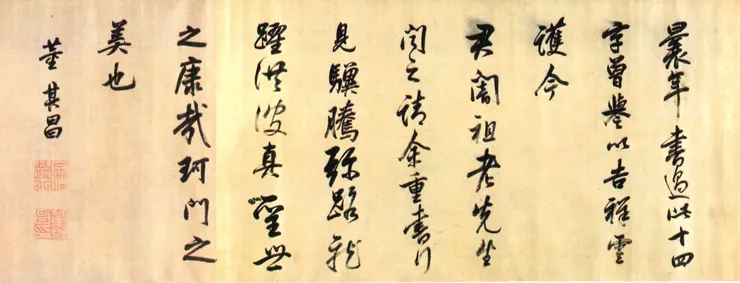 曩年書過此十四
字曾以吉祥雲
護今
君闇祖老先生
之請余重書行
見驥騰路龍
躍洪波真聖世
之康哉珂門之
美也
董其昌